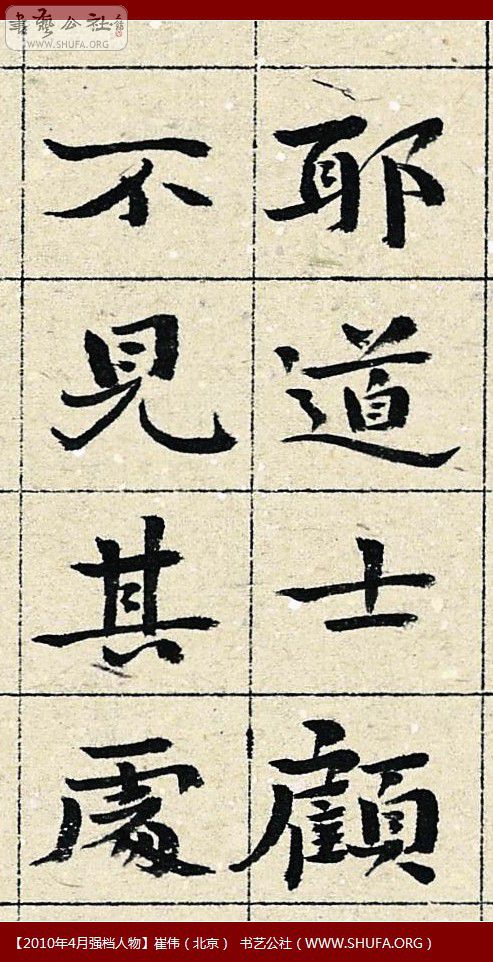 書藝公社
WWW.SHUFA.ORG
耶道士顧
不見其處
【2010年4月强档人物】崔伟（北京） 书艺公社（WWW.SHUFA.ORG）